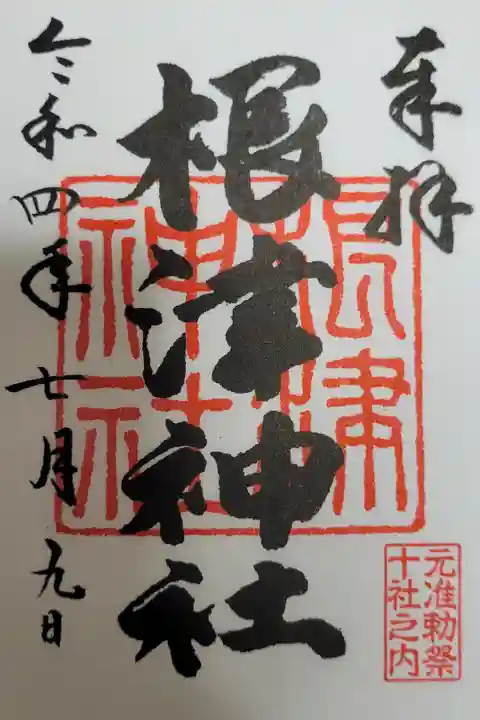 奉拝
根津神社
令和四年七月九日
根津
神社
元准勅祭
十社之内